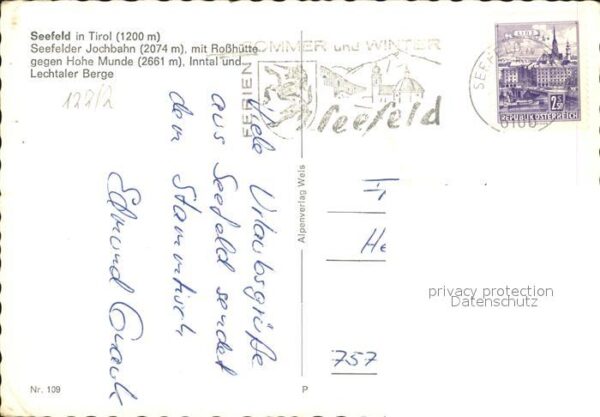 Seefeld in Tirol (1200 m)
Seefelder Jochbahn (2074 m), mit Roßhütte
gegen Hohe Munde (2661 m), Inntal und
Lechtaler Berge
FERIEN SOMMER und WINTER
Seefeld
LINZ
2.50
REPUBLIK ÖSTERREICH
Viele Urlaubsgrüße
aus Seefeld sendet
dem Stammtisch
Edmund
Alpenverlag Wels
He
757
privacy protection
Datenschutz
Nr. 109
P